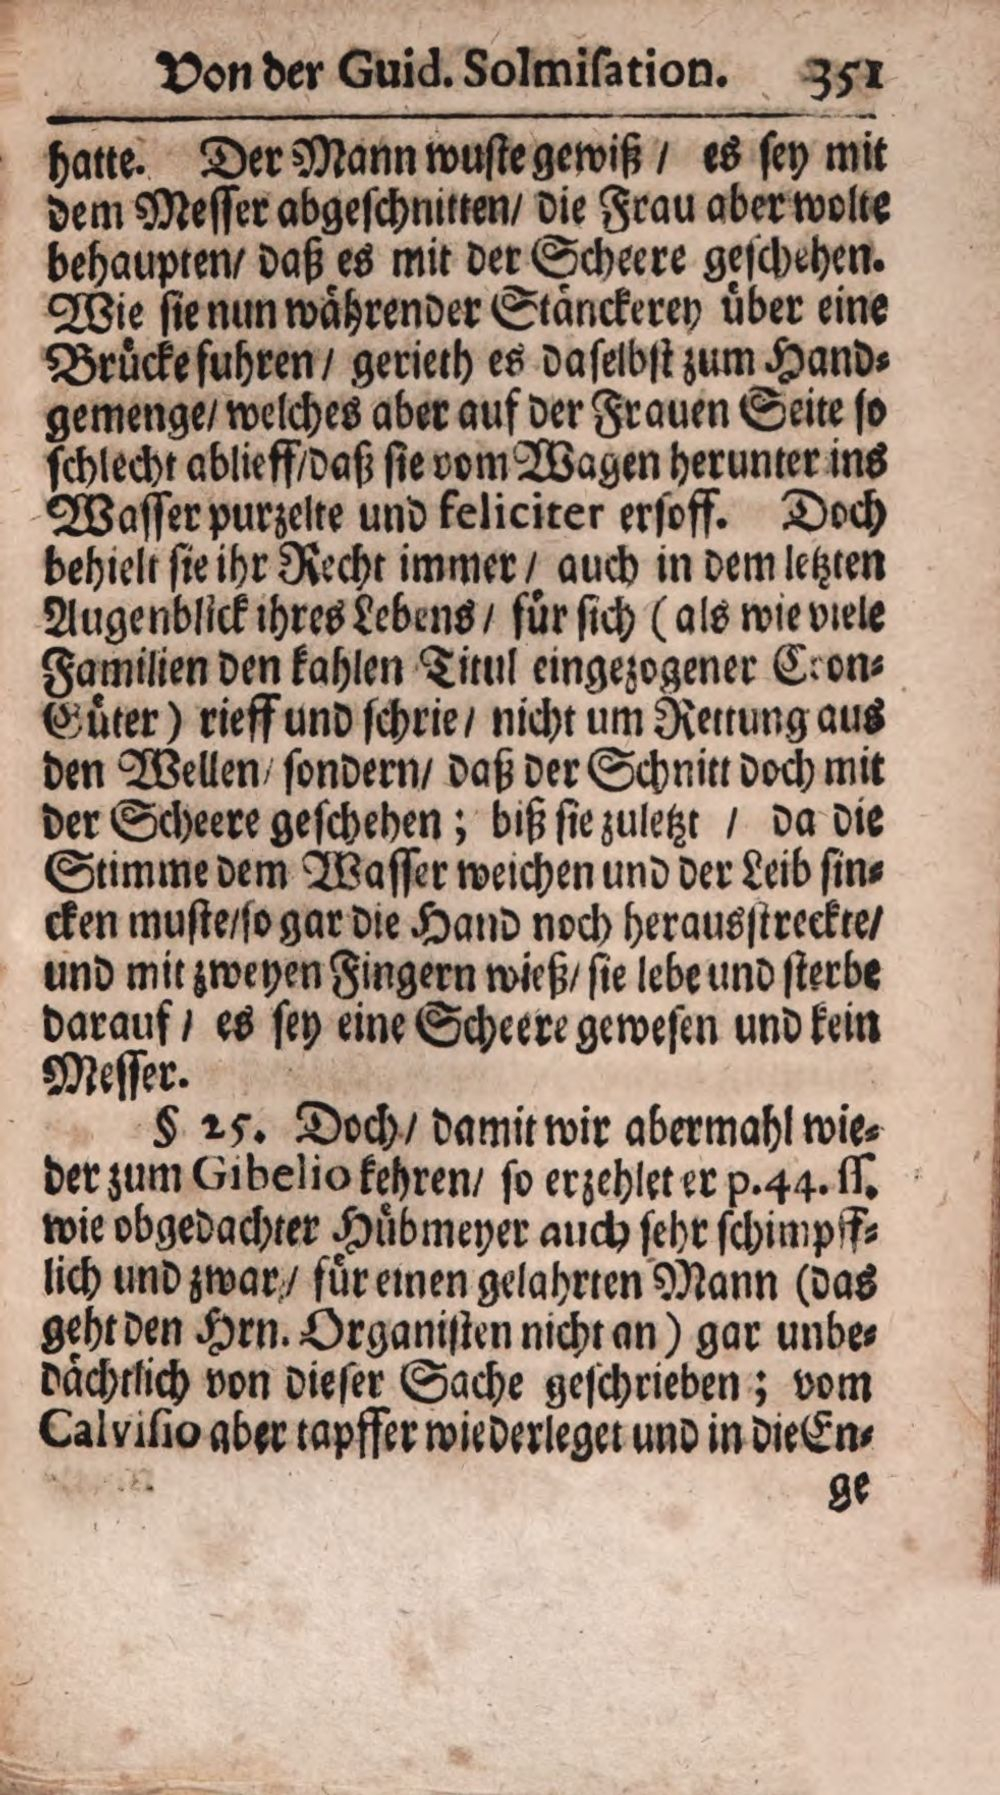 Von der Guid. Solmiſation. 351
hatte. Der Mann wuſte gewiß / es ſey mit
dem Meſſer abgeſchnitten/ die Frau aber wolte
behaupten/ daß es mit der Scheere geſchehen.
Wie ſie nun währender Stänckerey über eine
Brücke fuhren / gerieth es daſelbſt zum Hand-
gemenge/ welches aber auf der Frauen Seite ſo
ſchlecht ablieff/daß ſie vom Wagen herunter ins
Waſſer purzelte und feliciter erſoff. Doch
behielt ſie ihr Recht immer / auch in dem letzten
Augenblick ihres Lebens / für ſich (als wie viele
Familien den kahlen Titul eingezogener Cron-
Güter) rieff und ſchrie / nicht um Rettung aus
den Wellen/ ſondern/ daß der Schnitt doch mit
der Scheere geſchehen ; biß ſie zuletzt / da die
Stimme dem Waſſer weichen und der Leib ſin-
cken muſte/ſo gar die Hand noch herausſtreckte/
und mit zweyen Fingern wieß/ ſie lebe und ſterbe
darauf / es ſey eine Scheere geweſen und kein
Meſſer.
§ 25. Doch/ damit wir abermahl wie-
der zum Gibelio kehren/ ſo erzehlet er p.44. ſſ.
wie obgedachter Hübmeyer auch ſehr ſchimpff-
lich und zwar/ für einen gelahrten Mann (das
geht den Hrn. Organiſten nicht an) gar unbe-
dächtlich von dieſer Sache geſchrieben ; vom
Calviſio aber tapffer wiederleget und in die En-
ge